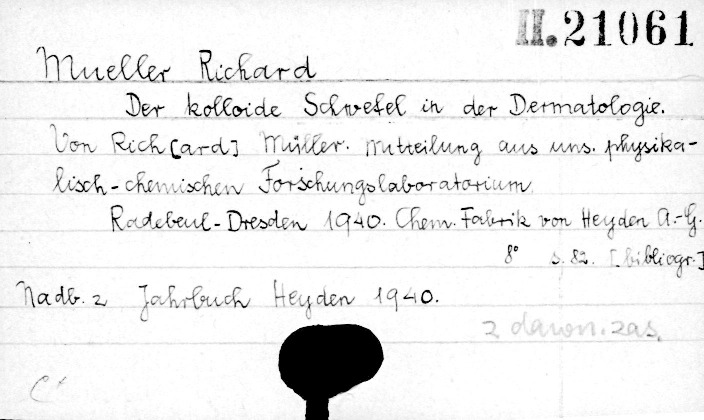 II.21061
Mueller Richard
Der kolloide Schwefel in der Dermatologie.
Von Rich[ard] Müller. Mitteilung aus uns. physika-
lisch-chemischen Forschungslaboratorium
Radebeul-Dresden 1940. Chem. Fabrik von Heyden A.-G.
8° s. 82. [bibliogr.]
Nadb. z Jahrbuch Heyden 1940.
z dawn. zas.